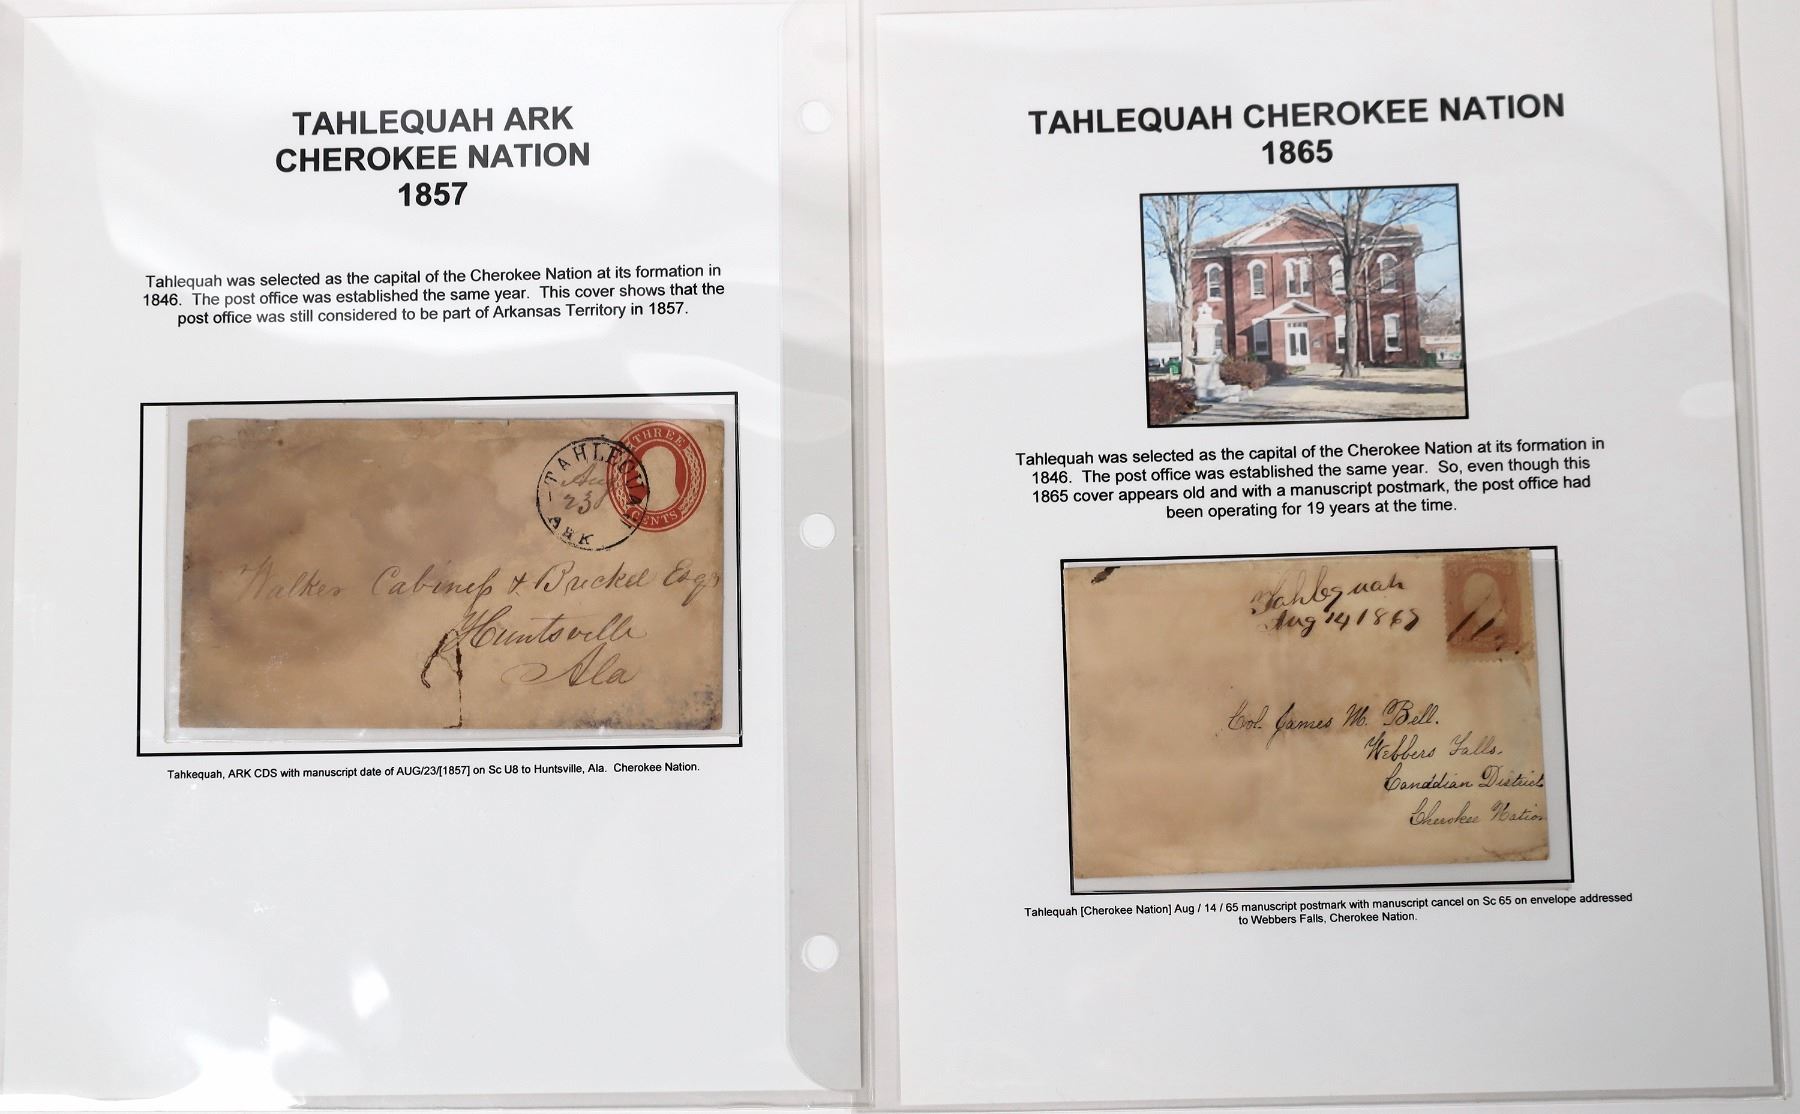 TAHLEQUAH ARK
CHEROKEE NATION
1857
Tahlequah was selected as the capital of the Cherokee Nation at its formation in
1846. The post office was established the same year. This cover shows that the
post office was still considered to be part of Arkansas Territory in 1857.
THREE
TAHLEQUAH
Aug
23
CENTS
ARK
Walker Cabiness & Brickel Esqr
Huntsville
Ala
Tahkequah, ARK CDS with manuscript date of AUG/23/[1857] on Sc U8 to Huntsville, Ala. Cherokee Nation.
TAHLEQUAH CHEROKEE NATION
1865
Tahlequah was selected as the capital of the Cherokee Nation at its formation in
1846. The post office was established the same year. So, even though this
1865 cover appears old and with a manuscript postmark, the post office had
been operating for 19 years at the time.
Tahlequah
Aug 14 1865
3 3
Col. James M. Bell.
Webbers Falls.
Canddian District
Cherokee Nation
Tahlequah [Cherokee Nation] Aug / 14 / 65 manuscript postmark with manuscript cancel on Sc 65 on envelope addressed
to Webbers Falls, Cherokee Nation.